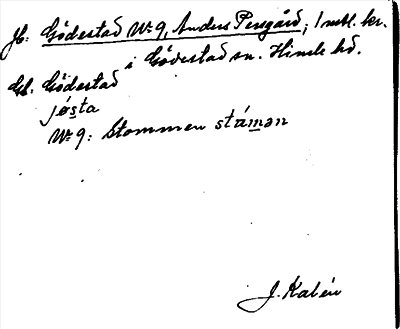 Jb: Gödestad No 9, Anders Persgård; 1 mtl. kr.
i Gödestad sn. Himle hd.
Gd. Gödestad
jösta
No 9: Stommen ståman
J. Kalén